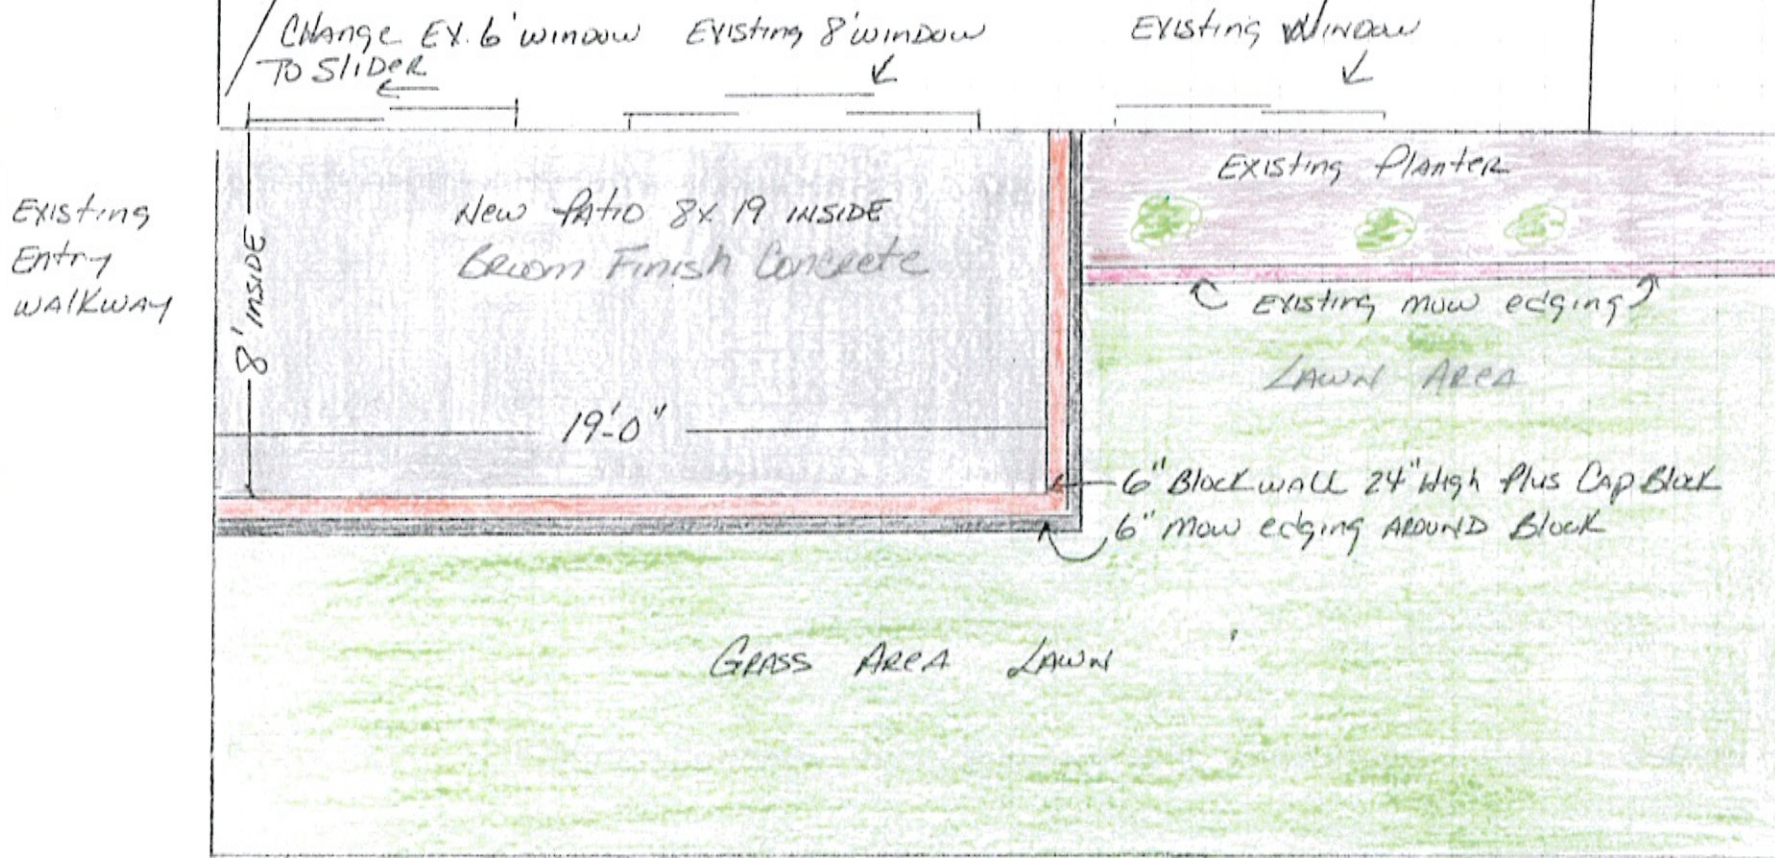 Change Ex. 6' window
To Slider
Existing 8' window
Existing Window
Existing
Entry
Walkway
8' inside
New Patio 8x19 inside
Broom Finish Concrete
19'-0"
Existing Planter
Existing mow edging
Lawn Area
6" Block wall 24" High Plus Cap Block
6" Mow edging Around Block
Grass Area Lawn